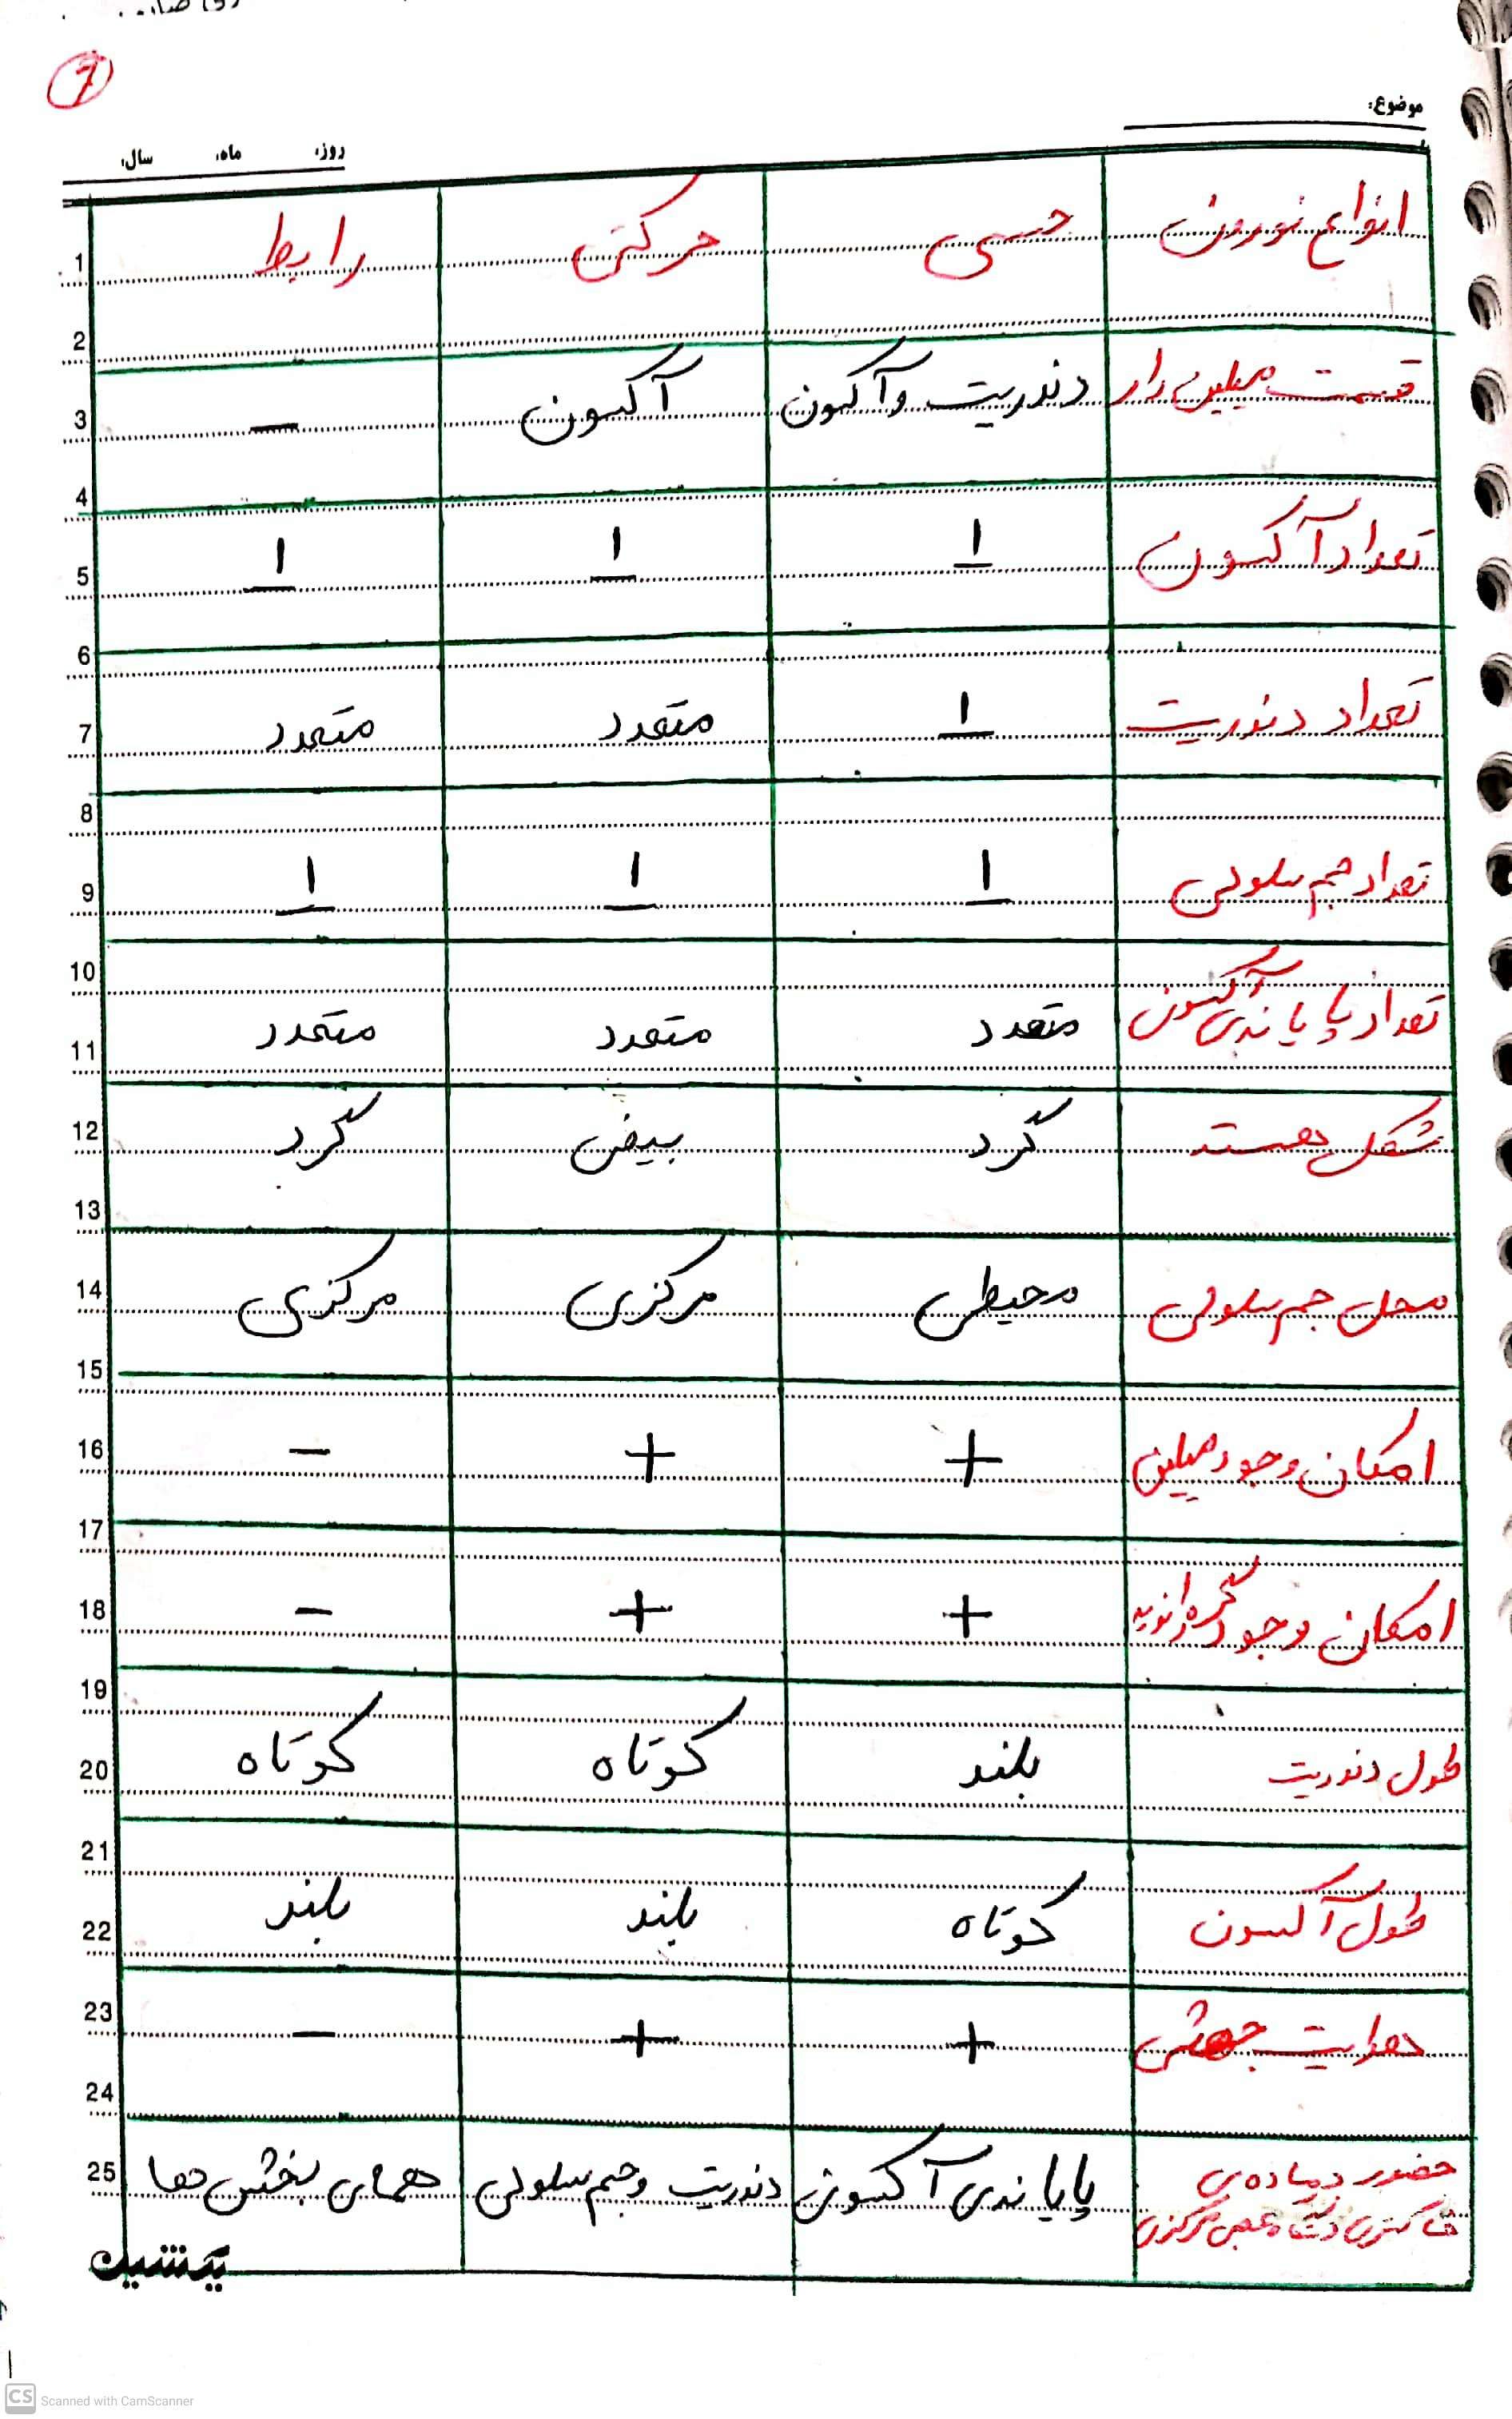 7
موضوع:
روز: ماه: سال:
انواع نورون حسی حرکتی رابط
قسمت میلین دار دندریت و آکسون آکسون —
تعداد آکسون ۱ ۱ ۱
تعداد دندریت ۱ متعدد متعدد
تعداد جسم سلولی ۱ ۱ ۱
تعداد پایانه‌ی آکسون متعدد متعدد متعدد
شکل هسته گرد بیضی گرد
محل جسم سلولی محیطی مرکزی مرکزی
امکان وجود میلین + + -
امکان وجود گره رانویه + + -
طول دندریت بلند کوتاه کوتاه
طول آکسون کوتاه بلند بلند
هدایت جهشی + + -
حضور در ماده‌ی پایانه‌ی آکسون دندریت و جسم سلولی همه‌ی بخش ها
خاکستری عصبی مرکزی
1
2
3
4
5
6
7
8
9
10
11
12
13
14
15
16
17
18
19
20
21
22
23
24
25
CS Scanned with CamScanner